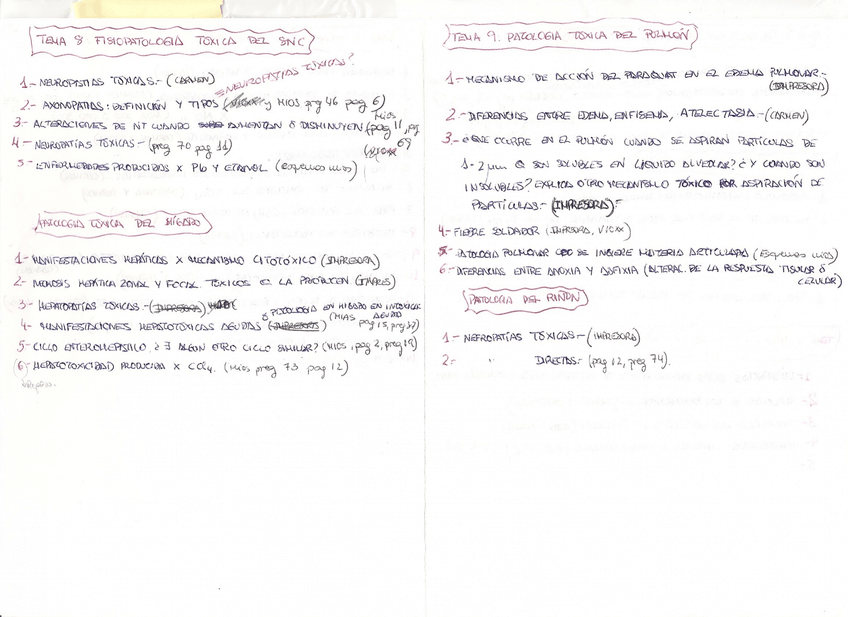 TEMA 8 FISIOPATOLOGIA TOXICA DEL SNC
1- NEUROPATIAS TOXICAS.- (CARMEN)
= NEUROPATIAS TOXICAS?
2- AXONOPATIAS: DEFINICIÓN Y TIPOS ( y MIOS preg 46 pag 6)
3- ALTERACIONES DE NT CUANDO AUMENTAN Ó DISMINUYEN (MIOS pag 11, preg 69
4- NEUROPATÍAS TÓXICAS- (preg 70 pag 11)
5- ENFERMEDADES PRODUCIDAS X Pb Y ETANOL (esquemas mios)
PATOLOGIA TOXICA DEL HÍGADO
1- MANIFESTACIONES HEPÁTICAS X MECANISMO CITOTÓXICO (IMPRESORA)
2- NECROSIS HEPÁTICA ZONAL Y FOCAL TOXICOS Q. LA PRODUCEN
3- HEPATOPATÍAS TOXICAS.- (IMPRESORA)
Ó PATOLOGÍA EN HIGADO EN INTOXICAC AGUDAS
4- MANIFESTACIONES HEPATOTÓXICAS AGUDAS (IMPRESORA) (MIAS pag 15, preg 37)
5- CICLO ENTEROHEPÁTICO ¿∃ ALGÚN OTRO CICLO SIMILAR? (MIOS, pag 2, preg 19)
6- HEPATOTOXICIDAD PRODUCIDA X CCl4. (Mios preg 73 pag 12)
TEMA 9. PATOLOGIA TOXICA DEL PULMÓN
1- MECANISMO DE ACCIÓN DEL PARAQUAT EN EL EDEMA PULMONAR.-
(IMPRESORA)
2- DIFERENCIAS ENTRE EDEMA, ENFISEMA, ATELECTASIA.- (CARMEN)
3- ¿QUE OCURRE EN EL PULMÓN CUANDO SE ASPIRAN PARTÍCULAS DE
1-2 µm Q SON SOLUBLES EN LÍQUIDO ALVEOLAR? ¿Y CUANDO SON
INSOLUBLES? EXPLICA OTRO MECANISMO TÓXICO POR ASPIRACIÓN DE
PARTÍCULAS.- (IMPRESORA)
4- FIEBRE SOLDADOR (IMPRESORA, VICKX)
5- PATOLOGIA PULMONAR SE INGIERE MATERIA ARTICULADA (Esquemas mios)
6- DIFERENCIAS ENTRE ANOXIA Y ASFIXIA (ALTERAC. DE LA RESPUESTA TISULAR Ó
CELULAR)
PATOLOGIA DEL RIÑÓN
1- NEFROPATÍAS TÓXICAS.- (IMPRESORA)
2- " DIRECTAS.- (pag 12, preg 74).